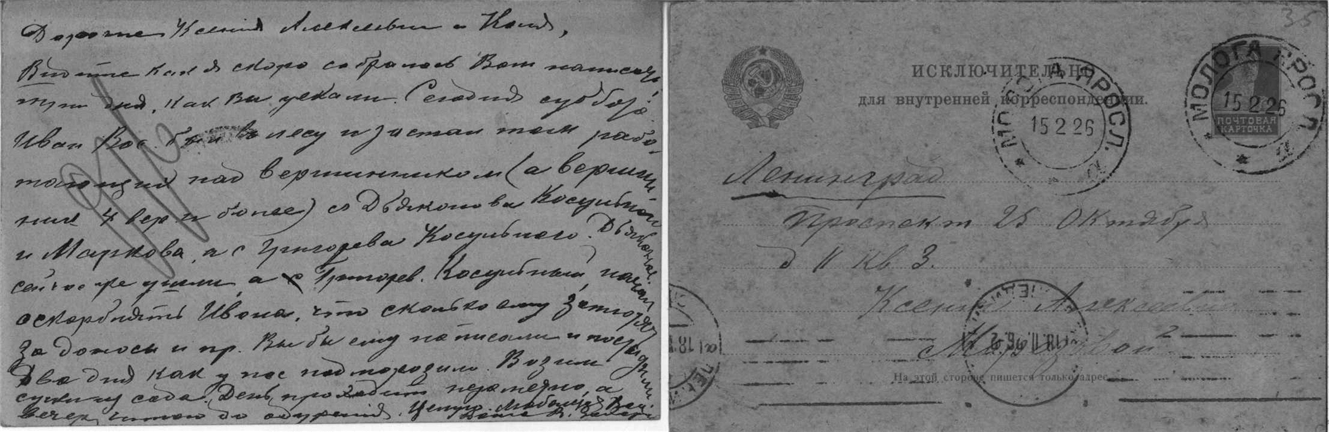 Дорогие Ксения Алексеевна и Коля,
Видите как я скоро собралась Вам написать,
три дня, как Вы уехали. Сегодня суббота
Иван Вас был в лесу и застал там рабо-
тающий над вершинником (а верши
ния 4 вер и более) со Дьяконова Косулиного
и Маркова, а с Григорева Косулиного. Дьяконов.
сейчас же ушли, а с Григорев. Косулиный, начал
оскорблять Ивана, что сколько ему
за доносы и пр. Вы бы ему написали и
Два дня как у нас подморозило. Возим
сада. День проходит незаметно, а
вечер, читаю до одурения. Целую. Любящая Вас
35
ИСКЛЮЧИТЕЛЬНО
для внутренней корреспонденции.
МОЛОГА ЯРОСЛ.
15 2 26
МОЛОГА ЯРОСЛ.
15 2 26
ПОЧТОВАЯ
КАРТОЧКА
Ленинград
Проспект 25 Октября
д 11 кв 3.
Ксении Алексеевне
На этой стороне пишется только адрес.